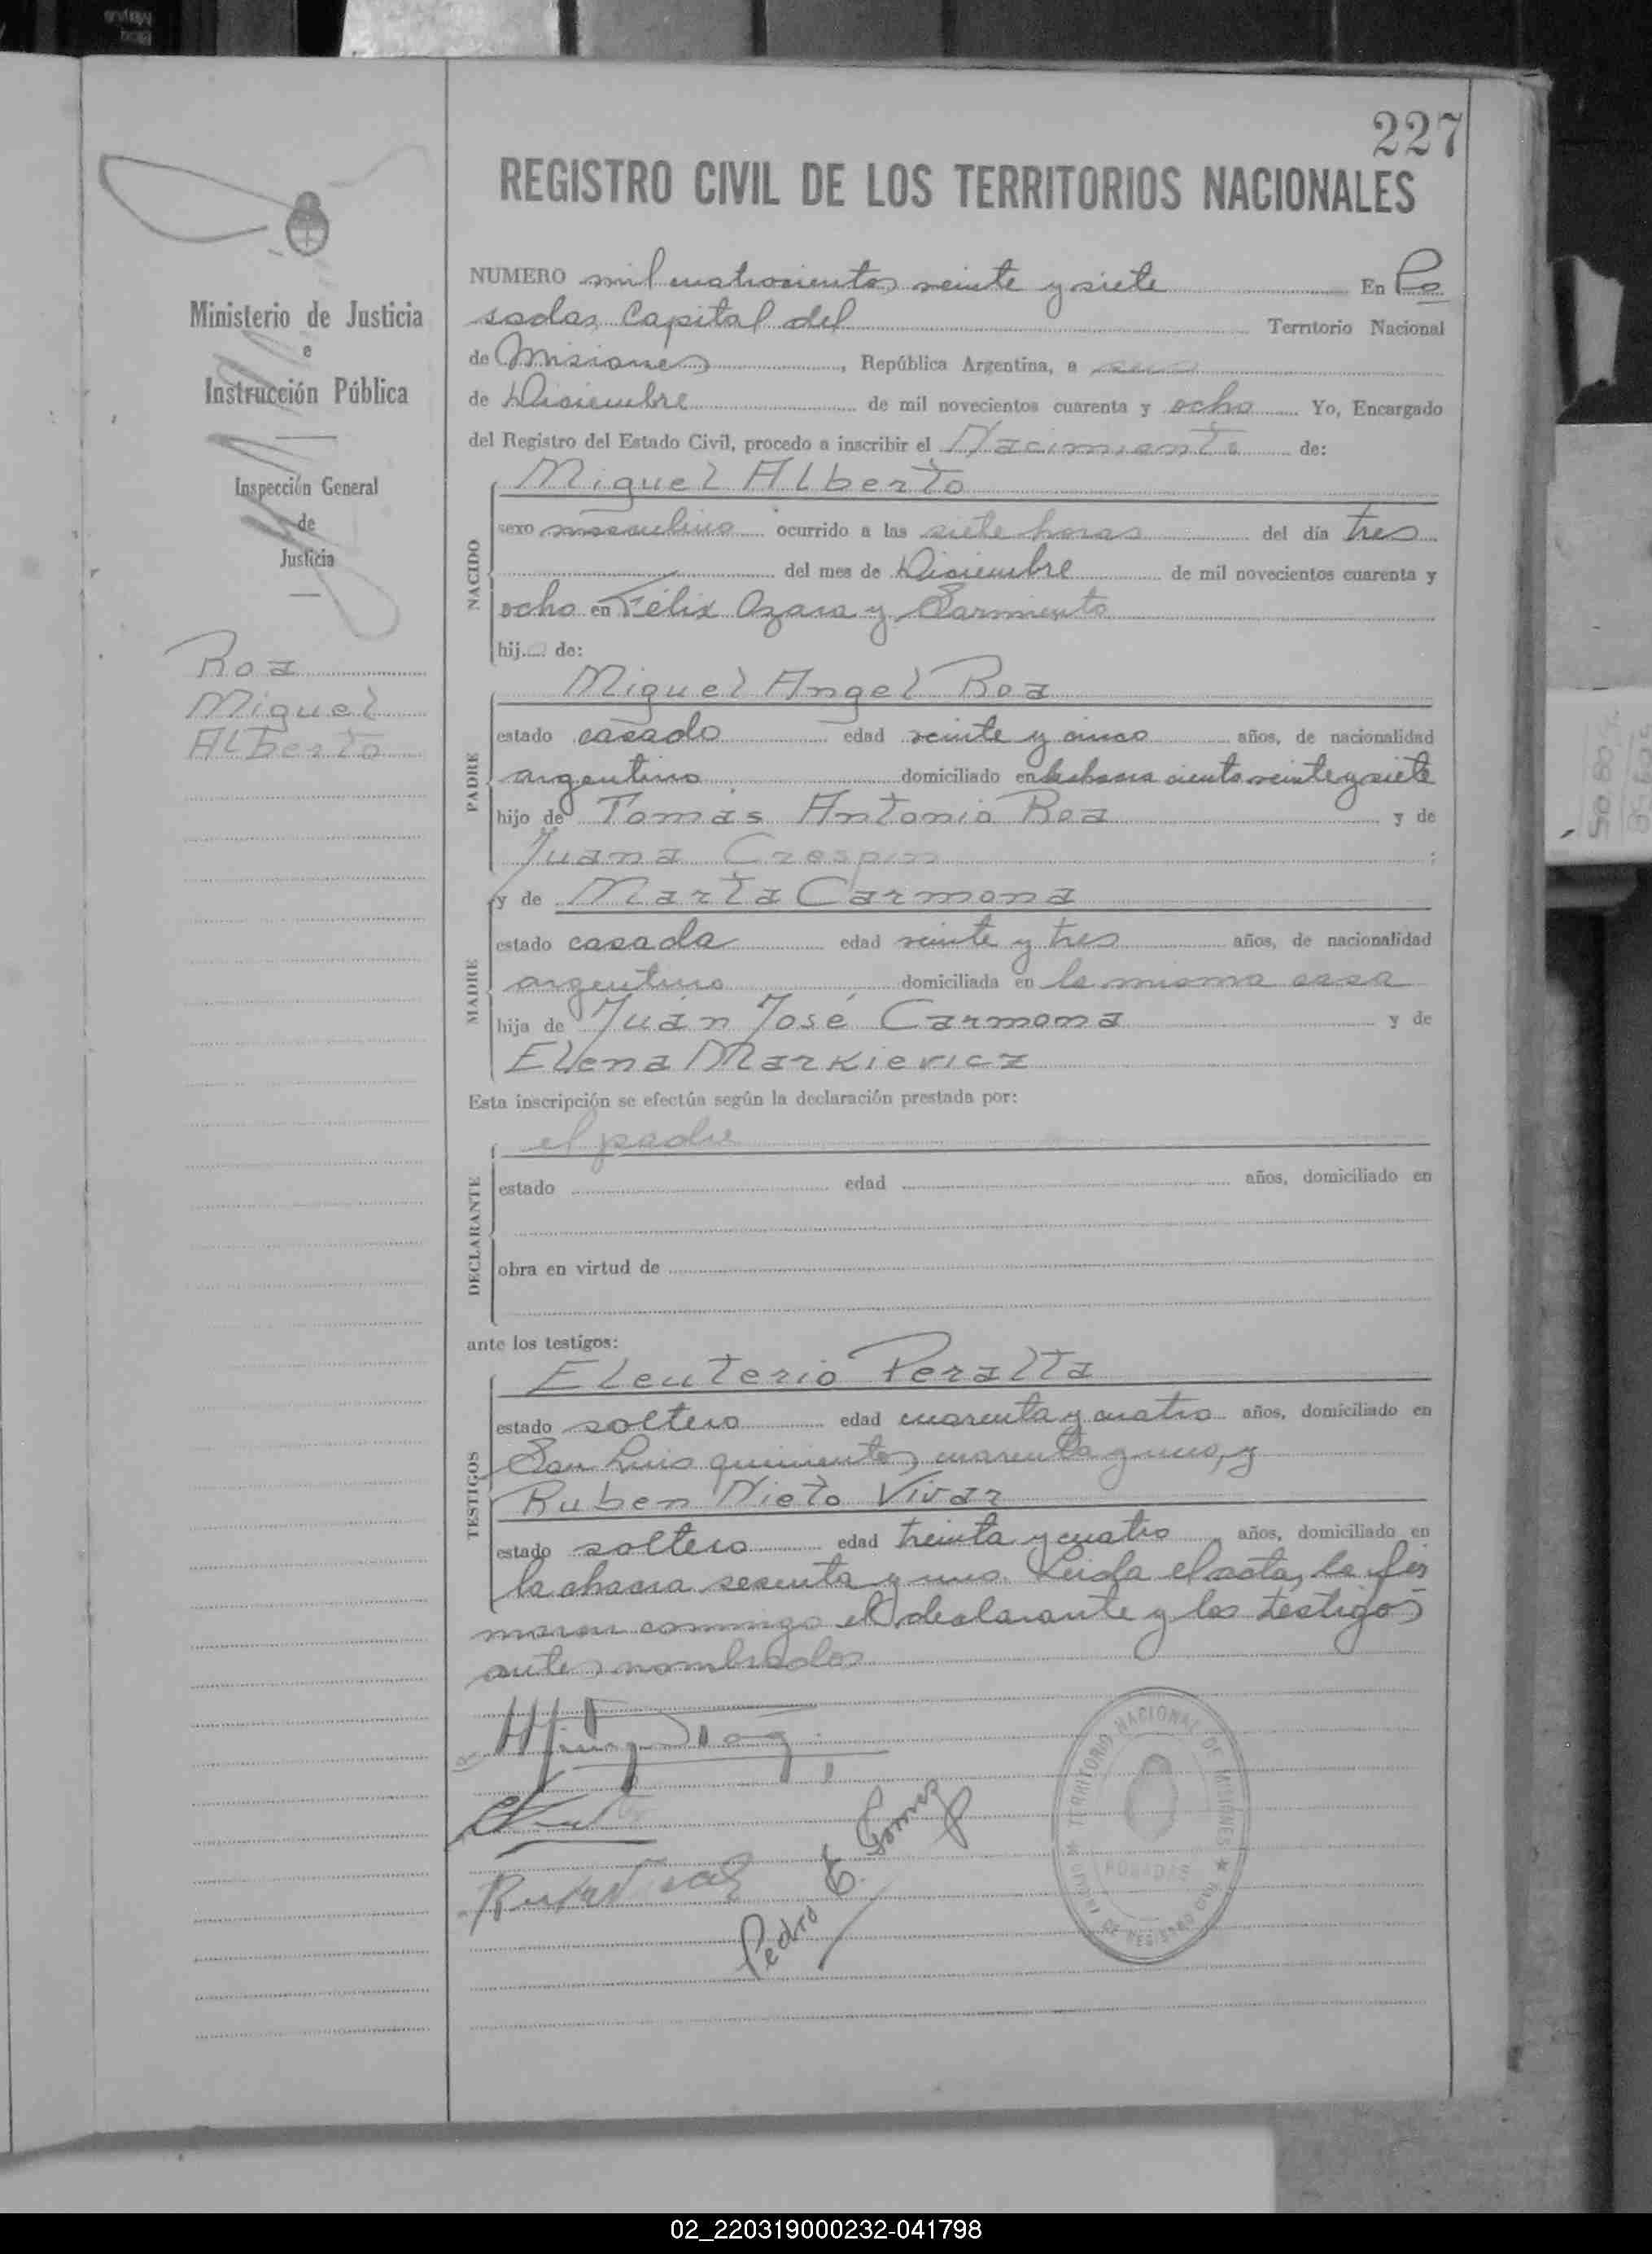 227
REGISTRO CIVIL DE LOS TERRITORIOS NACIONALES
Ministerio de Justicia
e
Instrucción Pública
Inspección General
de
Justicia
Roa
Miguel
Alberto
NUMERO mil cuatrocientos veinte y siete En Po
sadas Capital del Territorio Nacional
de Misiones, República Argentina, a
de Diciembre de mil novecientos cuarenta y ocho Yo, Encargado
del Registro del Estado Civil, procedo a inscribir el Nacimiento de:
NACIDO
Miguel Alberto
sexo masculino ocurrido a las siete horas del día tres
del mes de Diciembre de mil novecientos cuarenta y
ocho en Félix Azara y Sarmiento
hijo de:
PADRE
Miguel Angel Roa
estado casado edad veinte y cinco años, de nacionalidad
argentino domiciliado en la chacra ciento veinte y siete
hijo de Tomás Antonio Roa y de
Juana Crespin ;
MADRE
y de Marta Carmona
estado casada edad veinte y tres años, de nacionalidad
argentina domiciliada en la misma casa
hija de Juan José Carmona y de
Elena Markievicz
Esta inscripción se efectúa según la declaración prestada por:
DECLARANTE
el padre
estado edad años, domiciliado en
obra en virtud de
ante los testigos:
TESTIGOS
Eleuterio Peralta
estado soltero edad cuarenta y cuatro años, domiciliado en
San Luis quinientos cuarenta y uno, y
Ruben Nieto Vivar
estado soltero edad treinta y cuatro años, domiciliado en
la chacra sesenta y uno. Leida el acta, la fir
maron conmigo el declarante y los testigos
antes nombrados
Pedro E. Gomez
TERRITORIO NACIONAL DE MISIONES
POSADAS
DE REGISTRO CIVIL
02_220319000232-041798